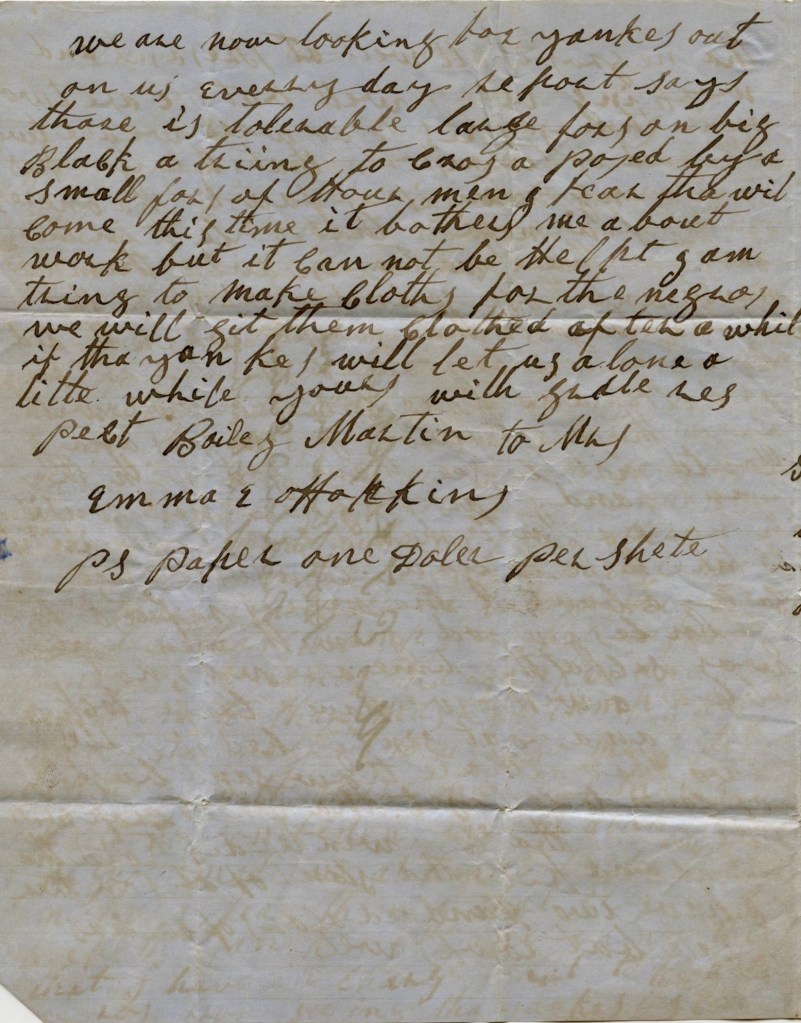 we are now looking for yankes out
on us everry day report says
thare is tolerable large fors on big
Black a triing to Cros a posed by a
small fors of Hours men g fear tha wil
Come this time it bothers me about
work but it Can not be Helpt g am
tring to make Cloths for the negros
we will git them Clothed after a whil
if tha yankes will let us alone a
litte while yours with
pect Bailey Martin to Mrs
Emma E Hopkins
PS paper one Doler per shete